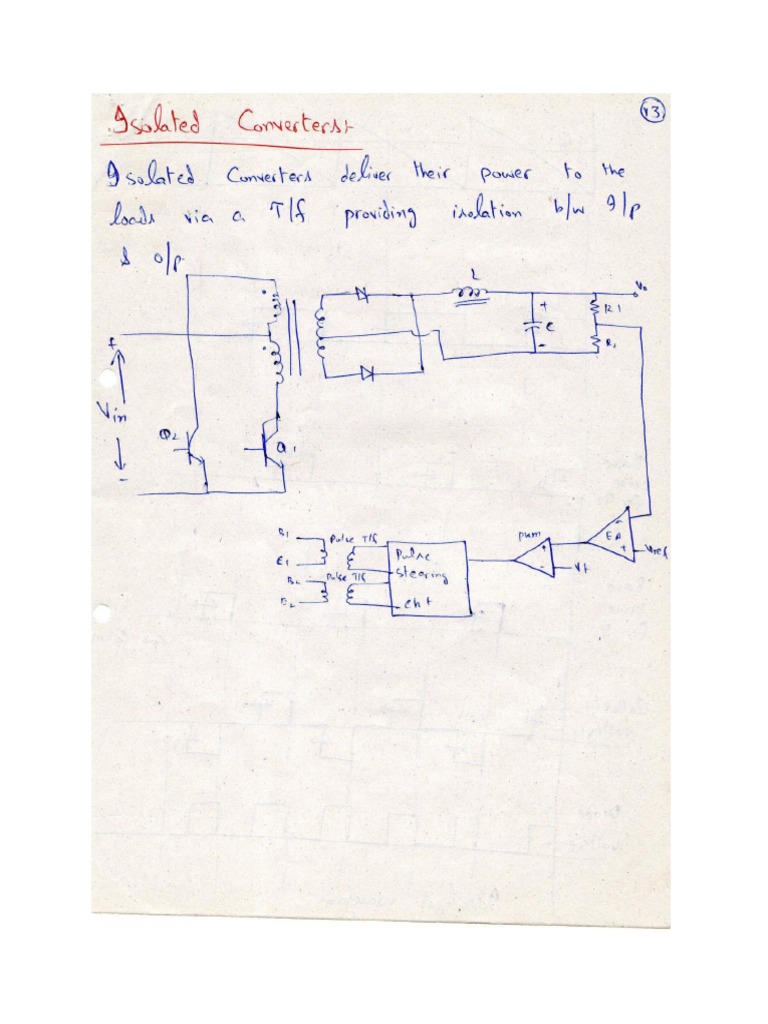 Isolated Converters:-
13
Isolated Converters deliver their power to the
loads via a T/f providing isolation b/w I/p
& o/p
L
Vo
+
R1
C
-
R1
+
Vin
-
Q2
Q1
B1
Pulse T/f
E1
B2
Pulse T/f
E2
Pulse
Steering
Ckt
pwm
+
-
Vt
-
EA
+
Vref